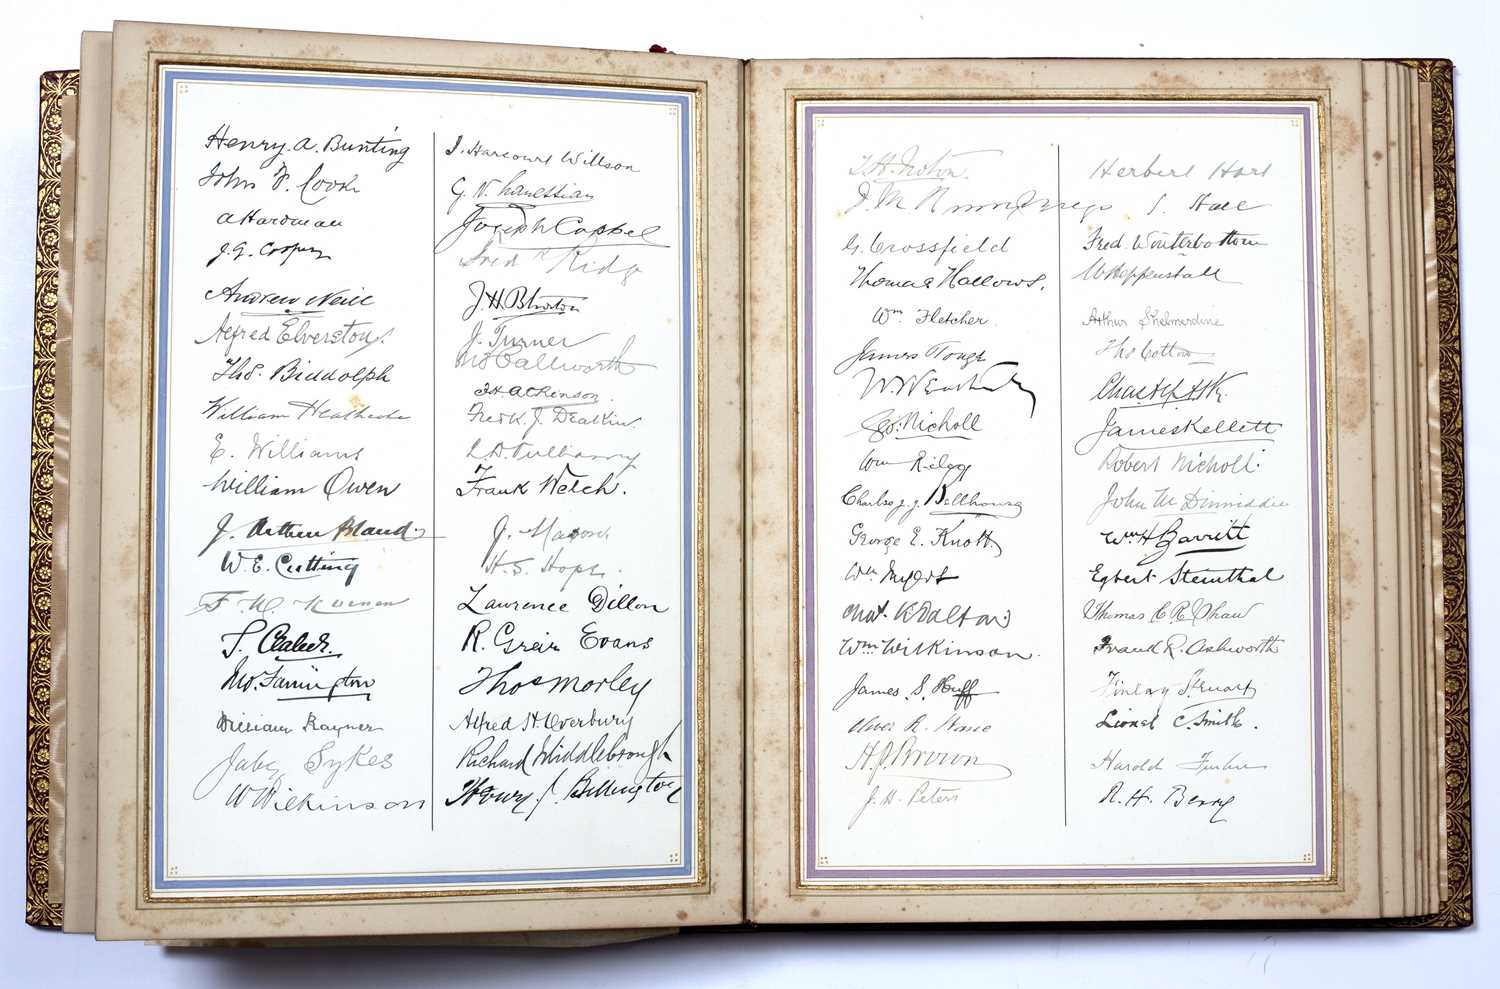 Henry. A. Bunting
John F. Cooke
A Hardman
J. G. Cooper
Andrew Neill
Alfred Elverston.
Thos. Biddolph
William
E. Williams
William Owen
J. Arthur Bland
W. E. Cutting
F
T.
Jno. Farrington
William Rayner
Jabez Sykes
W Wilkinson
J. Harcourt Willson
G. N.
Joseph Cassel
Fred Ridge
J. H.
J. Turner
J H Atkinson.
Fredk. J. Deakin
Frank Welch.
J.
H. S. Hope.
Lawrence Dillon
R. Greir Evans
Thos Morley
Alfred H Overbury
Richard Middlebrough
Henry J. Billington
T. H.
J. M Humphreys
G. Crossfield
Thomas Hallows.
Wm. Fletcher.
James Tonge
Geo: Nicholl
Wm Riley
Charles J. J. Bellhouse
George E. Knott.
Wm Myers
W Dalton
Wm. Wilkinson.
James. S. Huff
Oliver R.
H. J. Brown
J. H. Peters
Herbert Hart
Fred. Winterbottom
W Heppenstall
Arthur Shelmerdine
Thos Cotton
James Kellett
Robert Nicholl.
John M
Wm H Barritt
Egbert Steinthal
Thomas C. R. Shaw
Frank R. Ashworth
Finlay Stewart
Lionel C. Smith.
Harold
R. H. Berry